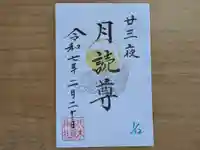 廿三夜
月読尊
令和七年二月二十日